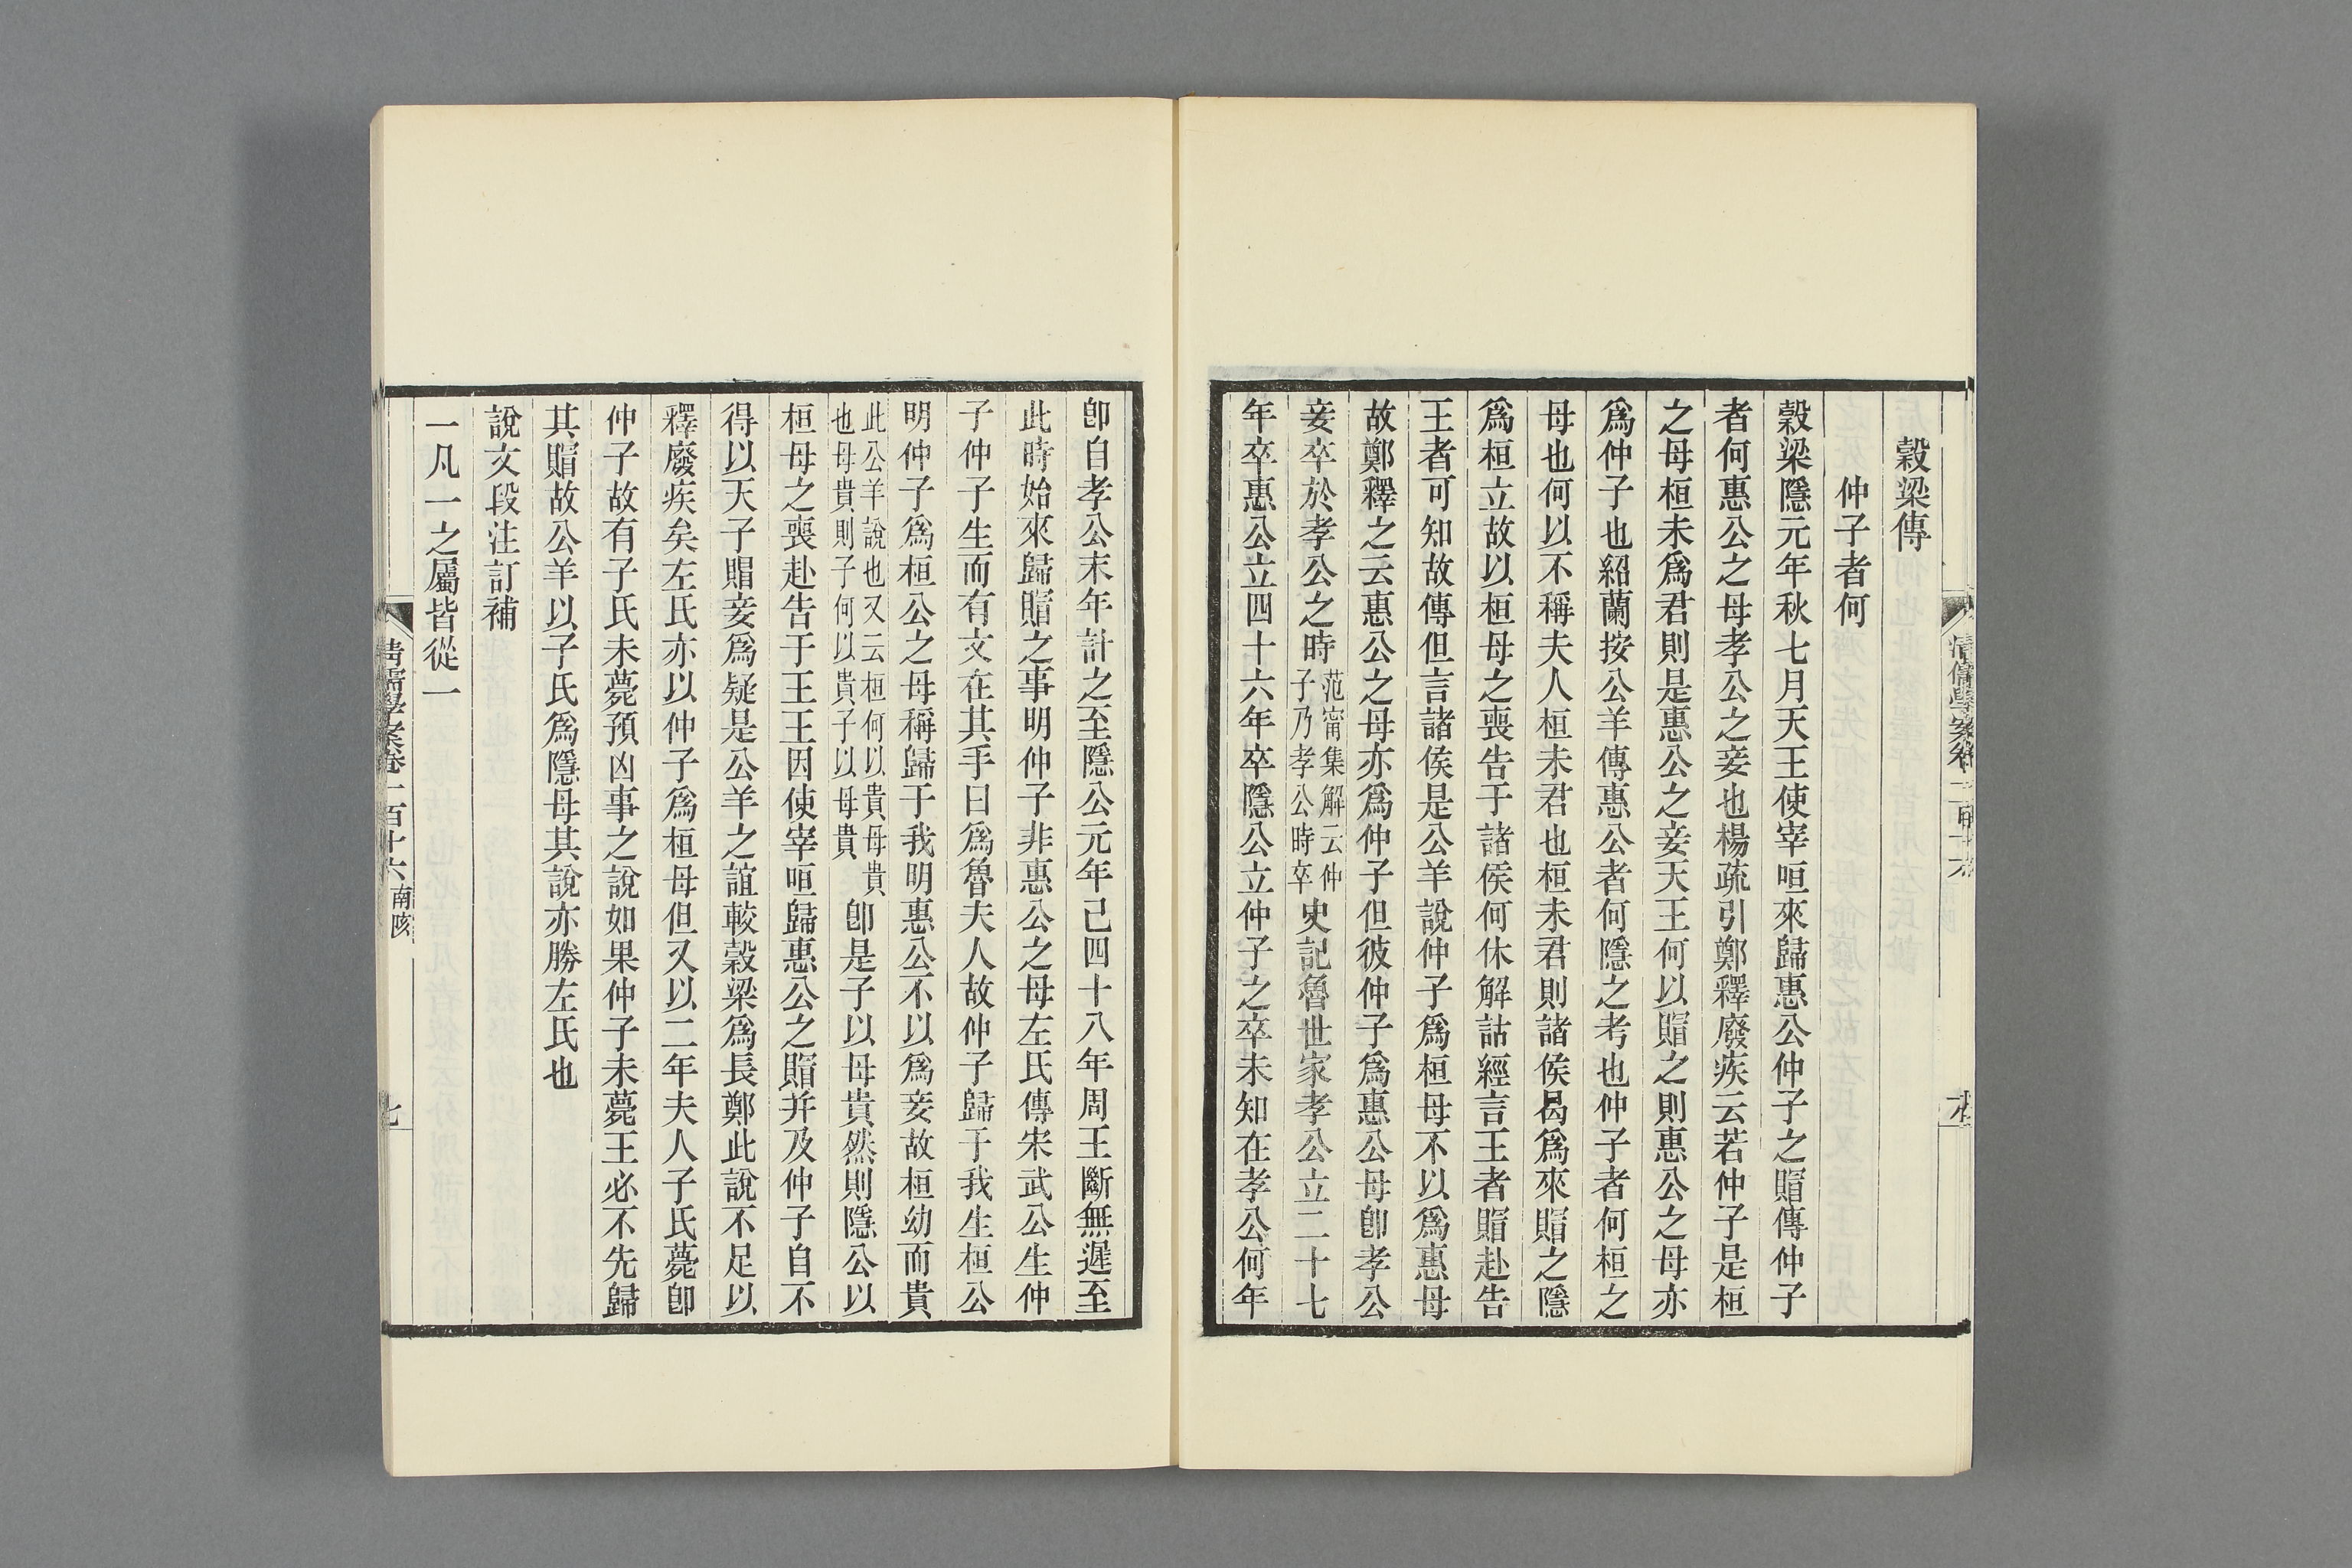 穀梁傳
仲子者何
穀梁隱元年秋七月天王使宰咺來歸惠公仲子之賵傳仲子
者何惠公之母孝公之妾也楊疏引鄭釋廢疾云若仲子是桓
之母桓未爲君則是惠公之妾天王何以賵之則惠公之母亦
爲仲子也紹蘭按公羊傳惠公者何隱之考也仲子者何桓之
母也何以不稱夫人桓未君也桓未君則諸侯曷爲來賵之隱
爲桓立故以桓母之喪告于諸侯何休解詁經言王者賵赴告
王者可知故傳但言諸侯是公羊說仲子爲桓母不以爲惠母
故鄭釋之云惠公之母亦爲仲子但彼仲子爲惠公母卽孝公
妾卒於孝公之時范甯集解云仲子乃孝公時卒史記魯世家孝公立二十七
年卒惠公立四十六年卒隱公立仲子之卒未知在孝公何年
卽自孝公末年計之至隱公元年己四十八年周王斷無遲至
此時始來歸賵之事明仲子非惠公之母左氏傳宋武公生仲
子仲子生而有文在其手曰爲魯夫人故仲子歸于我生桓公
明仲子爲桓公之母稱歸于我明惠公不以爲妾故桓幼而貴
此公羊說也又云桓何以貴母貴也母貴則子何以貴子以母貴卽是子以母貴然則隱公以
桓母之喪赴告于王王因使宰咺歸惠公之賵幷及仲子自不
得以天子賵妾爲疑是公羊之誼較穀梁爲長鄭此說不足以
釋廢疾矣左氏亦以仲子爲桓母但又以二年夫人子氏薨卽
仲子故有子氏未薨預凶事之說如果仲子未薨王必不先歸
其賵故公羊以子氏爲隱母其說亦勝左氏也
說文段注訂補
一凡一之屬皆從一
清儒學案卷一百十六 南陔
七